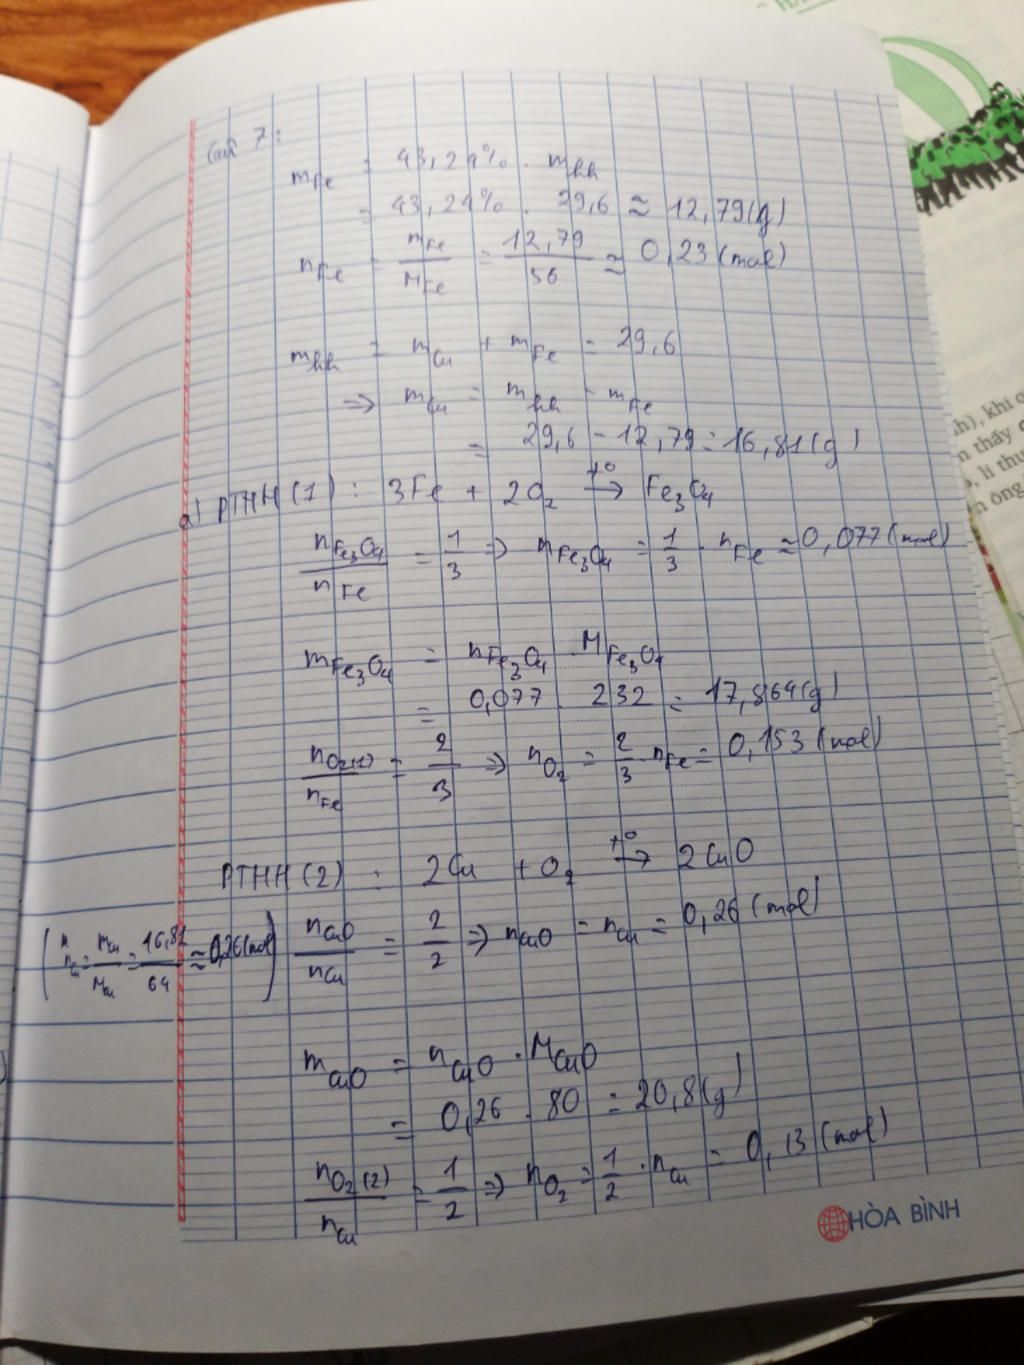 Câu 7:
m_Fe = 43,24% . m_hh
= 43,24% . 29,6 ≈ 12,79(g)
n_Fe = m_Fe / M_Fe = 12,79 / 56 ≈ 0,23 (mol)
m_hh = m_Cu + m_Fe = 29,6
⇒ m_Cu = m_hh - m_Fe
= 29,6 - 12,79 = 16,81(g)
a) PTHH (1) : 3Fe + 2O₂ →(t°) Fe₃O₄
n_Fe₃O₄ / n_Fe = 1/3 ⇒ n_Fe₃O₄ = 1/3 . n_Fe ≈ 0,077 (mol)
m_Fe₃O₄ = n_Fe₃O₄ . M_Fe₃O₄
= 0,077 . 232 = 17,864(g)
n_O₂(1) / n_Fe = 2/3 ⇒ n_O₂ = 2/3 . n_Fe = 0,153 (mol)
PTHH (2) : 2Cu + O₂ →(t°) 2CuO
(n_Cu = m_Cu / M_Cu = 16,81 / 64 ≈ 0,26(mol)) n_CuO / n_Cu = 2/2 ⇒ n_CuO = n_Cu = 0,26 (mol)
m_CuO = n_CuO . M_CuO
= 0,26 . 80 = 20,8(g)
n_O₂(2) / n_Cu = 1/2 ⇒ n_O₂ = 1/2 . n_Cu = 0,13 (mol)
HÒA BÌNH
khi
thấy
lí
ông